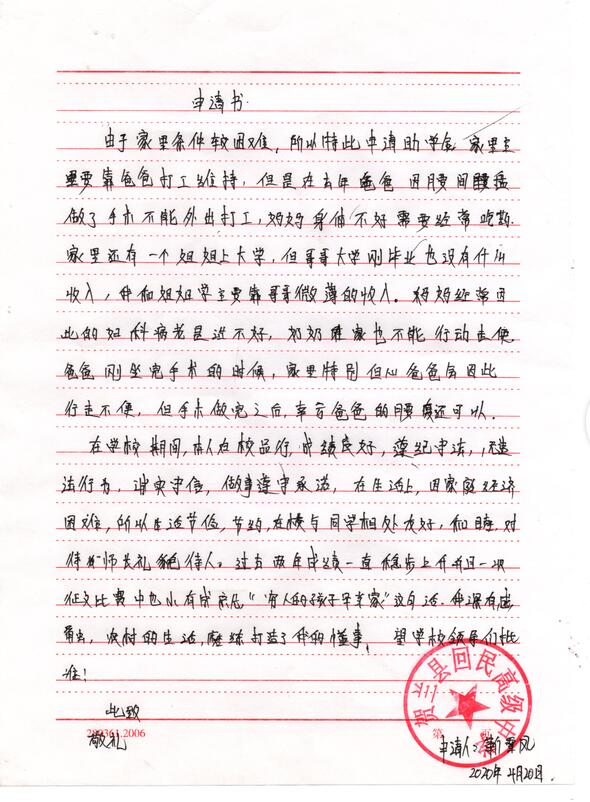 申请书
由于家里条件较困难，所以特此申请助学金。家里主
要靠爸爸打工维持，但是在去年爸爸因腰间腰椎
做了手术不能外出打工，妈妈身体不好需要经常吃药
家里还有一个姐姐上大学，但哥哥大学刚毕业也没有什么
收入，我和姐姐学主要靠哥哥微薄的收入。妈妈经常因
此的妇科病老是治不好，奶奶在家也不能行动走便
爸爸刚坐完手术的时候，家里特别但心爸爸会因此
行走不便，但手术做完之后，幸亏爸爸的腰还可以。
在学校期间，本人在校品行，成绩良好，遵纪守法，无违
法行为，诚实守信，做事遵守承诺，在生活上，因家庭经济
困难，所以生活节俭，节约，在校与同学相处友好，和睦，对
待师长礼貌待人。过去两年成绩一直稳步上升并且一次
征文比赛中也小有成就"穷人的孩子早当家"这句话，我深有感
触，农村的生活，磨练打造了我的懂事，望学校领导们批
准！
此致
敬礼
209361.2006
第 页
贺兰县回民高级中学
申请人：
2020年4月20日.